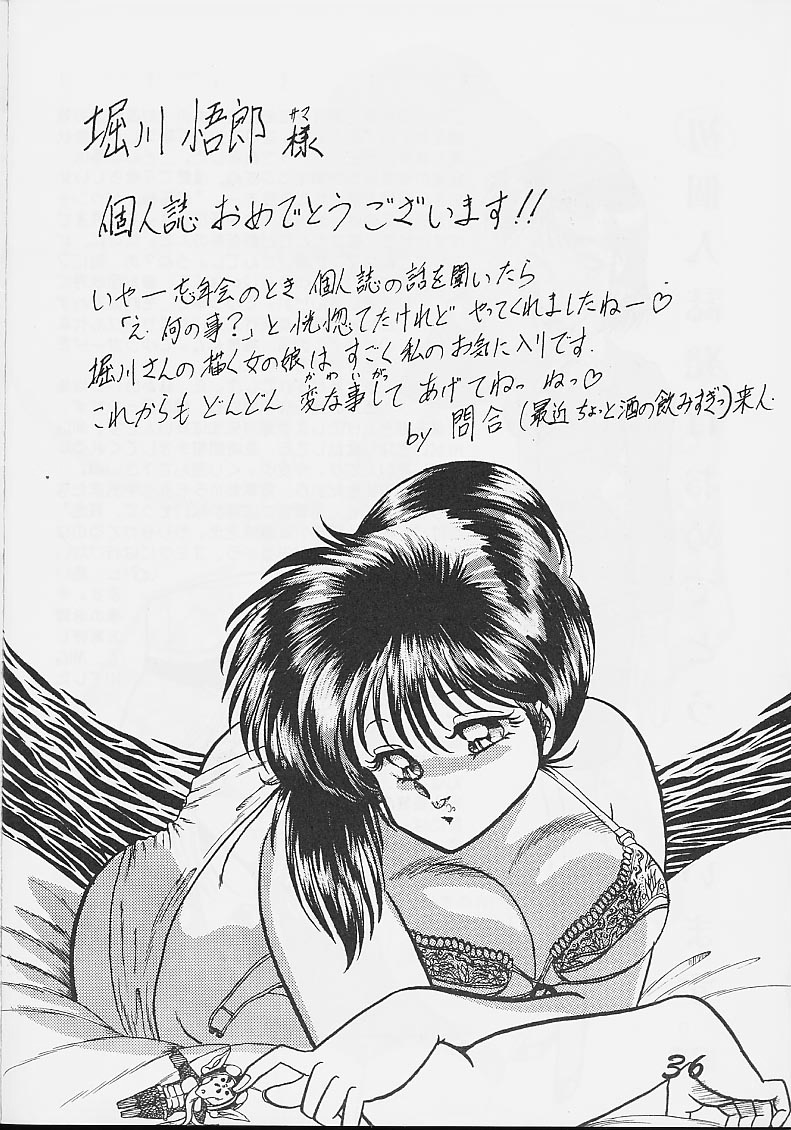 堀川 悟郎 様
サマ
個人誌 おめでとうございます!!
いやー忘年会のとき 個人誌の話を聞いたら
「え、何の事?」と恍惚てたけれど やってくれましたねー♡
堀川さんの描く女の娘は すごく私のお気に入りです.
これからも どんどん 変な事して あげてねっ ねっ♡
かわいがっ
by 問合 (最近 ちょっと酒の飲みすぎっ) 来人
36